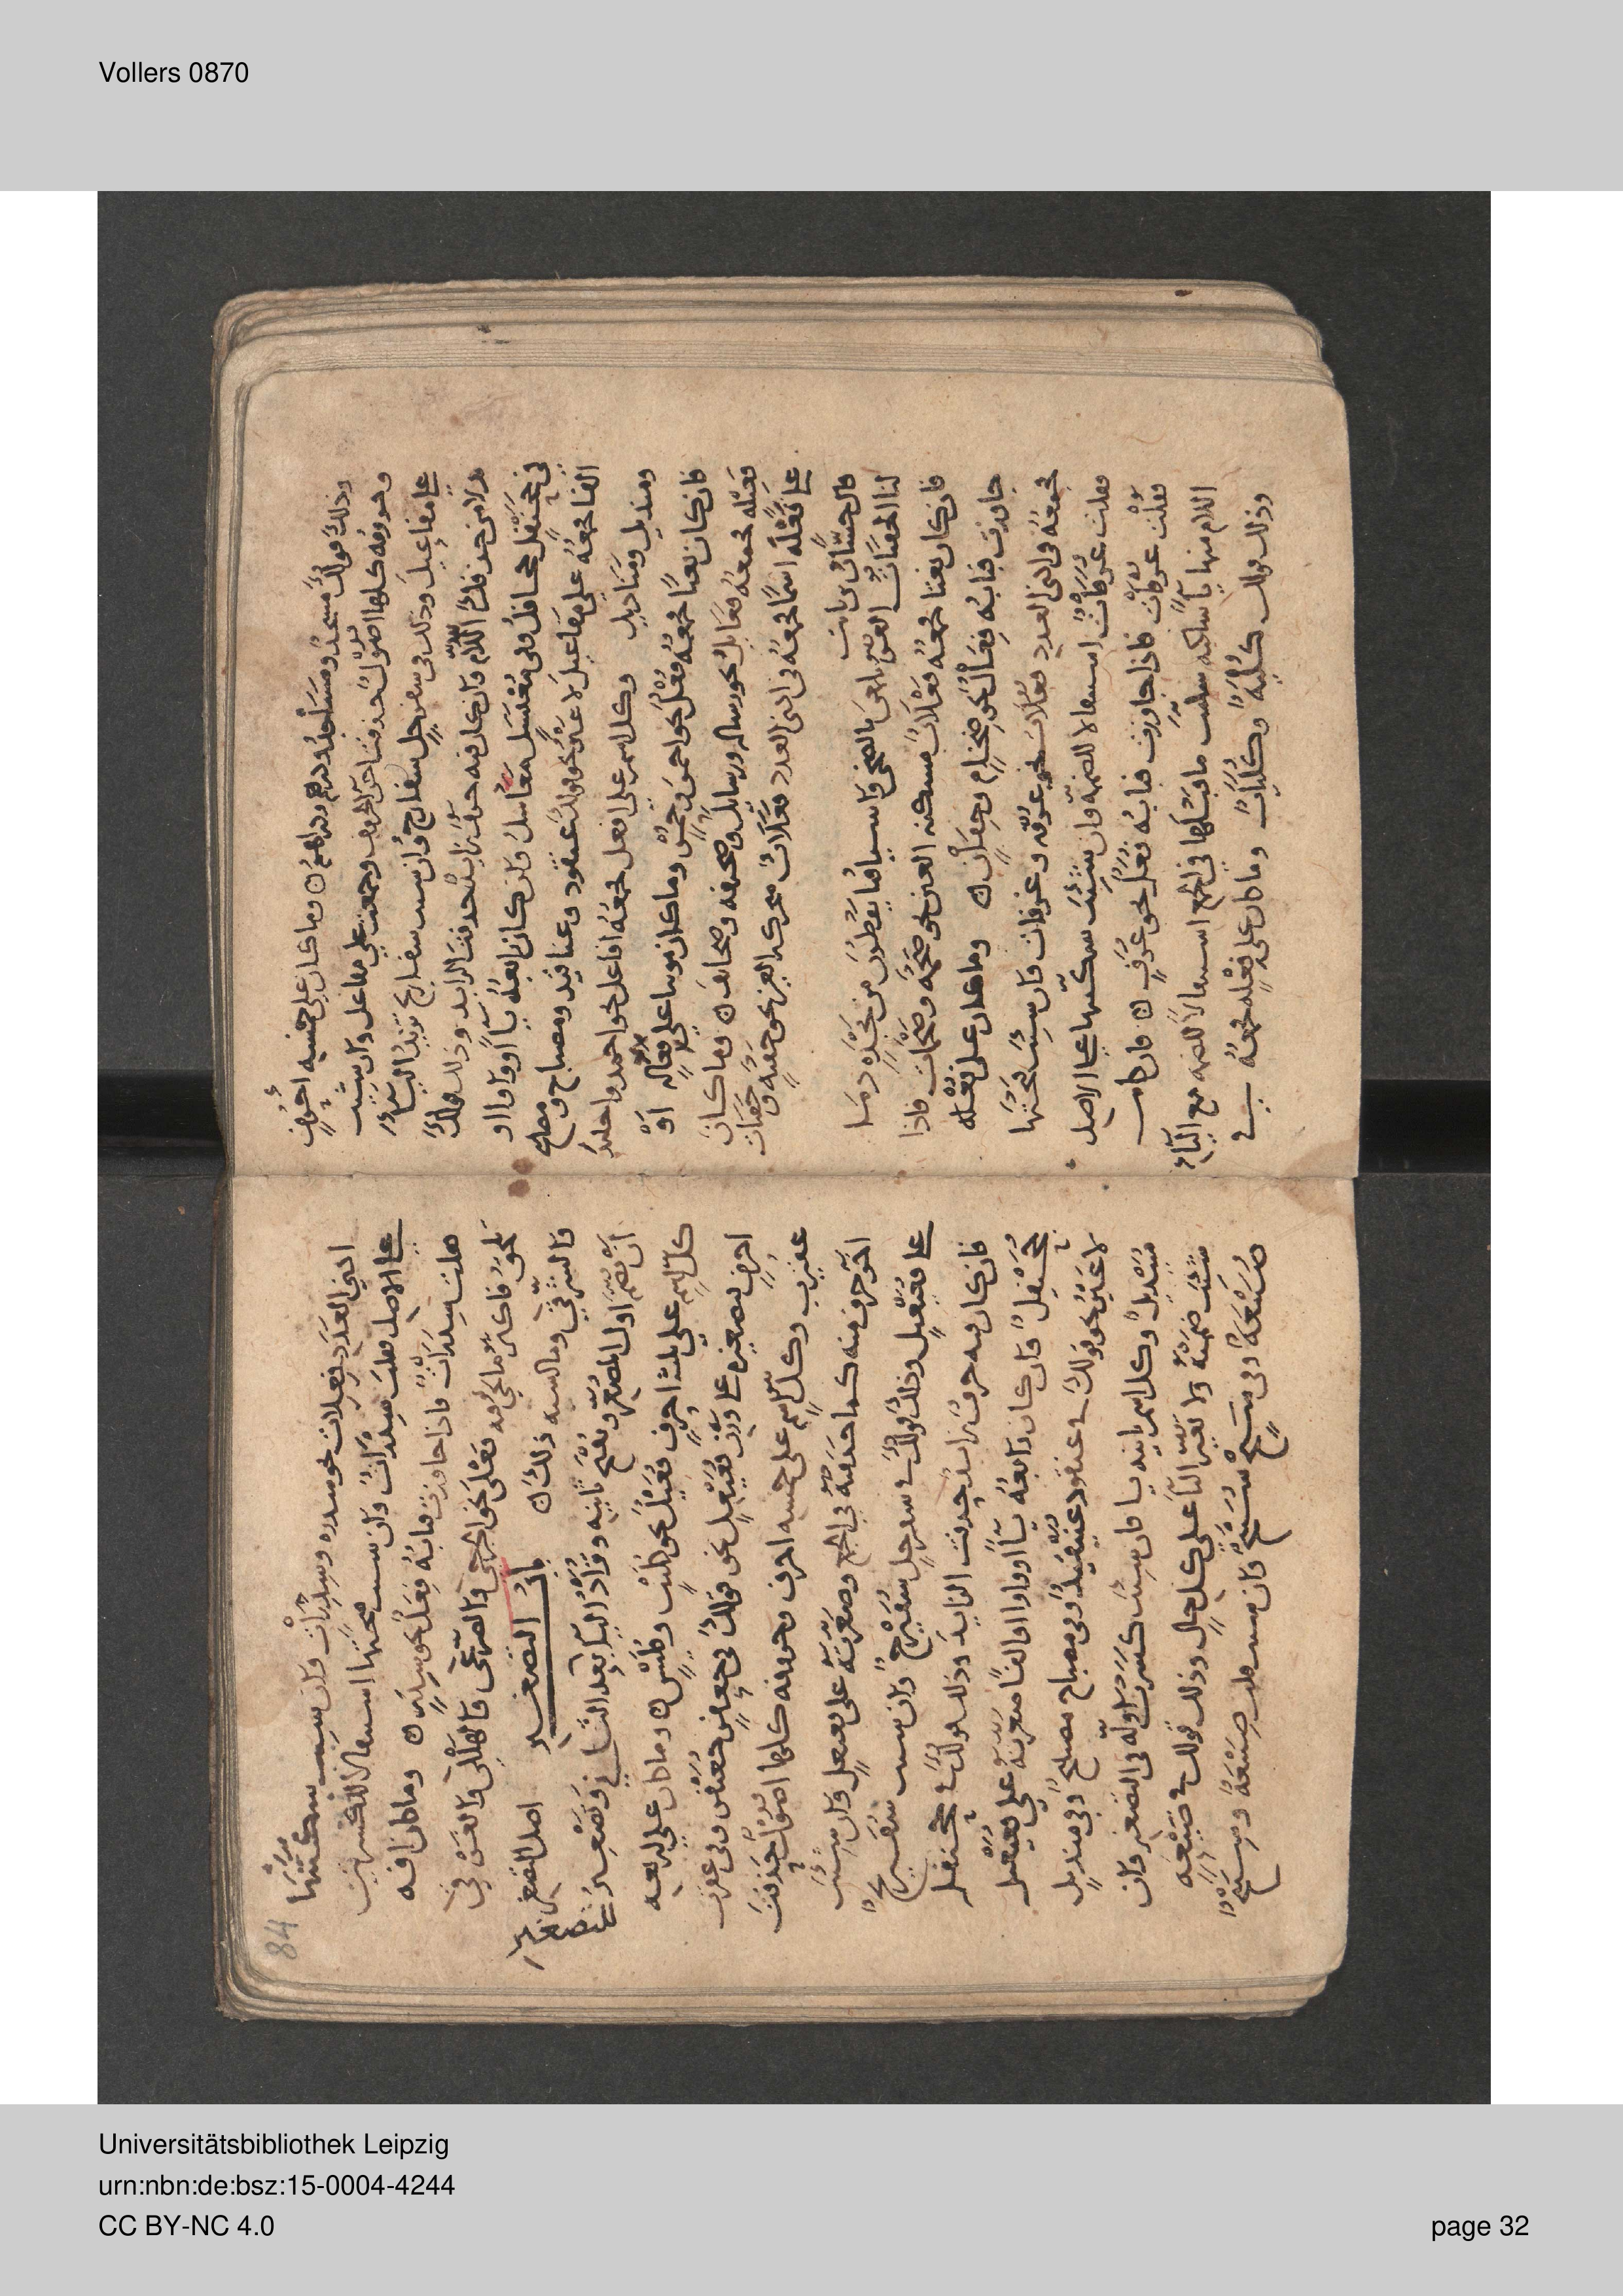 Vollers 0870
وذلك قولك مسجد ومساجد ودرهم ودراهم وما كان على خمسه احرف
وحروفه كلها اصول حذفت اخر الحروف وجمعت على مفاعل وان شيت
على مفاعيل وذلك في سفرجل سفارج وان شيت سفاريج تزيد اليا
بدلا من حذف اللام وان كان فيه حرف زايد حذفت الزايد وذلك قولك
في جحنفل جحافل وفي مغتسل مغاسل فان كان رابعه يا او واوا او
الفا جمعته على مفاعيل لا غير نحو قولك عنقود وعناقيد ومصباح ومصابيح
ومنديل ومناديل وكل اسم على افعل جمعه افاعل نحو احمد واحامد
فان كان نعتا جمعه فعل نحو احمر وحمر وما كان مونثا على فعاله او
فعيله فجمعه فعايل نحو رساله ورسايل وصحيفه وصحايف وما كان
على فعله اسما جمعه في ادنى العدد فعلات متحركه العين نحو جفنه وجفنات
قال حسان بن ثابت
لنا الجفنات الغر يلمعن بالضحى واسيافنا يقطرن من نجده دما
فان كان نعتا جمعه فعلات مسكنه العين نحو ضخمه وضخمات فاذا
جاوزت فبابه فعال نحو ضخام وجفان وما كان على فعله
جمعه في ادنى العدد فعلات نحو غرفه وغرفات فان شيت فتحتها
فقلت غرفات استثقالا للضمه وان شيت سكنتها على الاصل
فقلت غرفات فاذا جاوزت فبابه فعل نحو غرف فان كانت
اللام منها يا ساكنه ما قبلها في الجمع استثقالا للضمه مع اليا
وذلك قولك كليه وكليات وما كان على فعله جمعه في
84
ادنى العدد فعلات نحو سدره وسدرات وان شيت سكنتها
على الاصل فقلت سدرات وان شيت فتحتها استثقالا للكسرتين
فقلت سدرات فاذا جاوزت فبابه فعل نحو سدر وما كان
فاكثر ما يجي فيه فعلى نحو الجرحى والصرعى والهلكى
وما اشبه ذلك باب التصغير اصل التصغير
ان تضم اول المصغر وتفتح ثانيه وتزاد اليا بعد الثاني وتصغير
كل اسم على ثلثه احرف فعيل نحو كليب وفليس وما كان على اربعه
احرف تصغيره على وزن فعيعل نحو قولك في جعفر جعيفر وفي عقرب
عقيرب وكل اسم على خمسه احرف وحروفه كلها اصول حذفت
اخر حرف منه كما حذفته في الجمع وصغرته على فعيعل وان شيت
على فعيعيل وذلك قولك في سفرجل سفيرج وان شيت سفيريج
فان كان فيه حرف زايد حذفت الزايد وذلك قولك في جحنفل
جحيفل فان كان رابعه يا او واوا او الفا صغرته على فعيعيل
لا غير نحو قولك في عنقود عنيقيد وفي مصباح مصيبيح وفي منديل
منيديل وكل اسم ثانيه يا فان شيت كسرت اوله في التصغير وان
شيت ضممته ولا تغير اليا على كل حال وذلك قولك في ضيعه
ضييعه وفي شيخ شييخ وان شيت قلت ضييعه وشييخ
Universitätsbibliothek Leipzig
urn:nbn:de:bsz:15-0004-4244
CC BY-NC 4.0
page 32